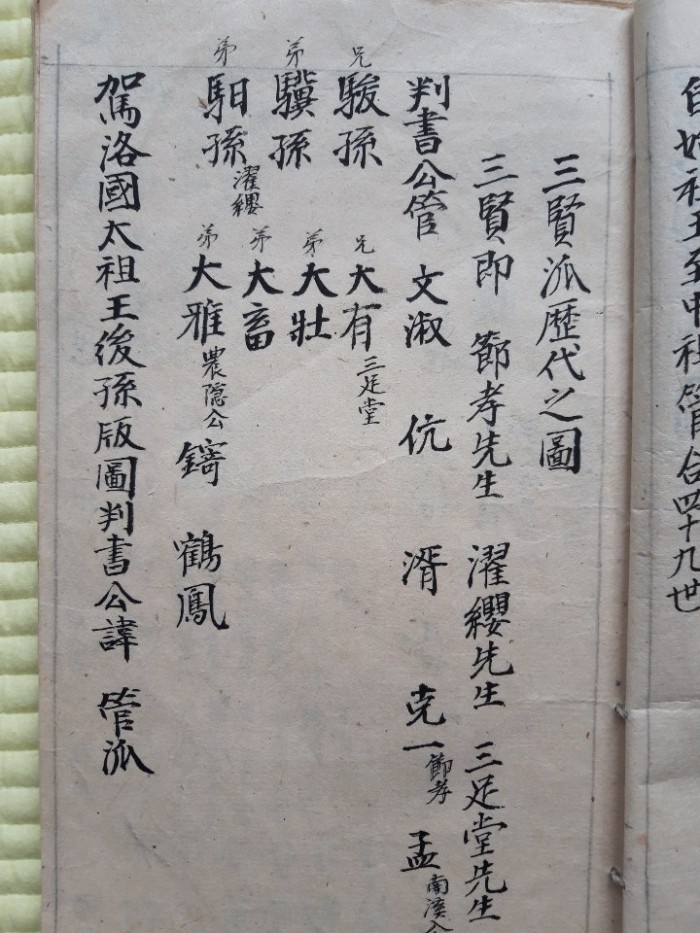 自始祖王至中祖管公四十九世
三賢派歷代之圖
三賢即 節孝先生 濯纓先生 三足堂先生
判書公管 文淑 伉 湑 克一 節孝 孟 南溪公
兄 駿孫 兄 大有 三足堂
弟 驥孫 弟 大壯
弟 馹孫 濯纓 弟 大畜
弟 大雅 農隱公 鎬 鶴鳳
駕洛國太祖王後孫版圖判書公諱 管派